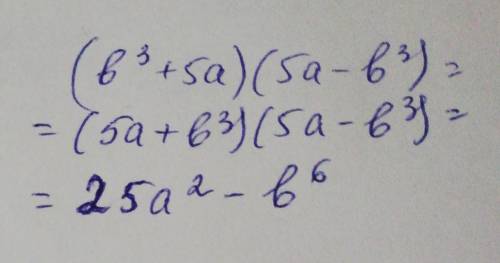 (b³+5a)(5a-b³)=
=(5a+b³)(5a-b³)=
=25a²-b⁶